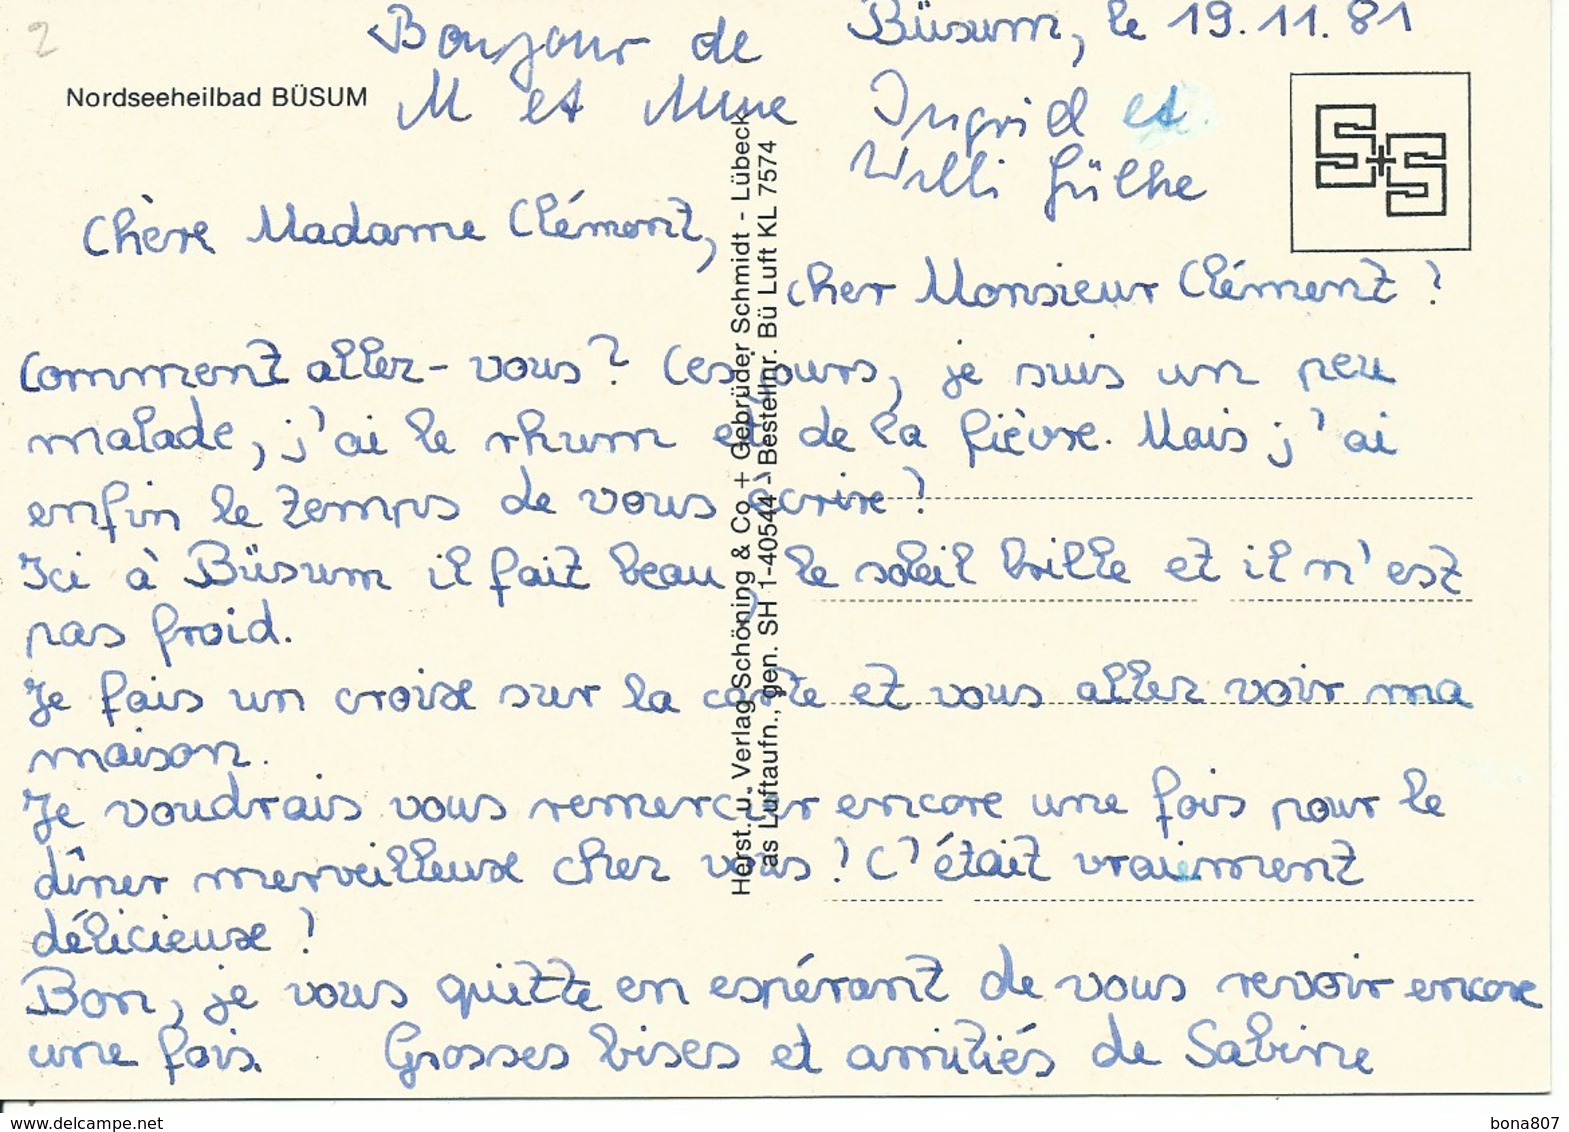 2
Bonjour de
M et Mme Ingrid et
Willi Gülke
Büsum, le 19.11.81
Nordseeheilbad BÜSUM
S+S
Chère Madame Clément,
cher Monsieur Clément!
Comment allez-vous? Ces jours, je suis un peu
malade, j'ai le rhum et de la fièvre. Mais j'ai
enfin le temps de vous écrire!
Ici à Büsum il fait beau, le soleil brille et il n'est
pas froid.
Je fais un croixe sur la carte et vous allez voir ma
maison.
Je voudrais vous remercier encore une fois pour le
dîner merveilleuse chez vous! C'était vraiment
délicieuse!
Bon, je vous quitte en espérant de vous revoir encore
une fois. Grosses bises et amitiés de Sabine
Horst. u. Verlag Schöning & Co + Gebrüder Schmidt - Lübeck
as Luftaufn., gen. SH 1-40544 - Bestellnr. Bü Luft KL 7574
www.delcampe.net
bona807